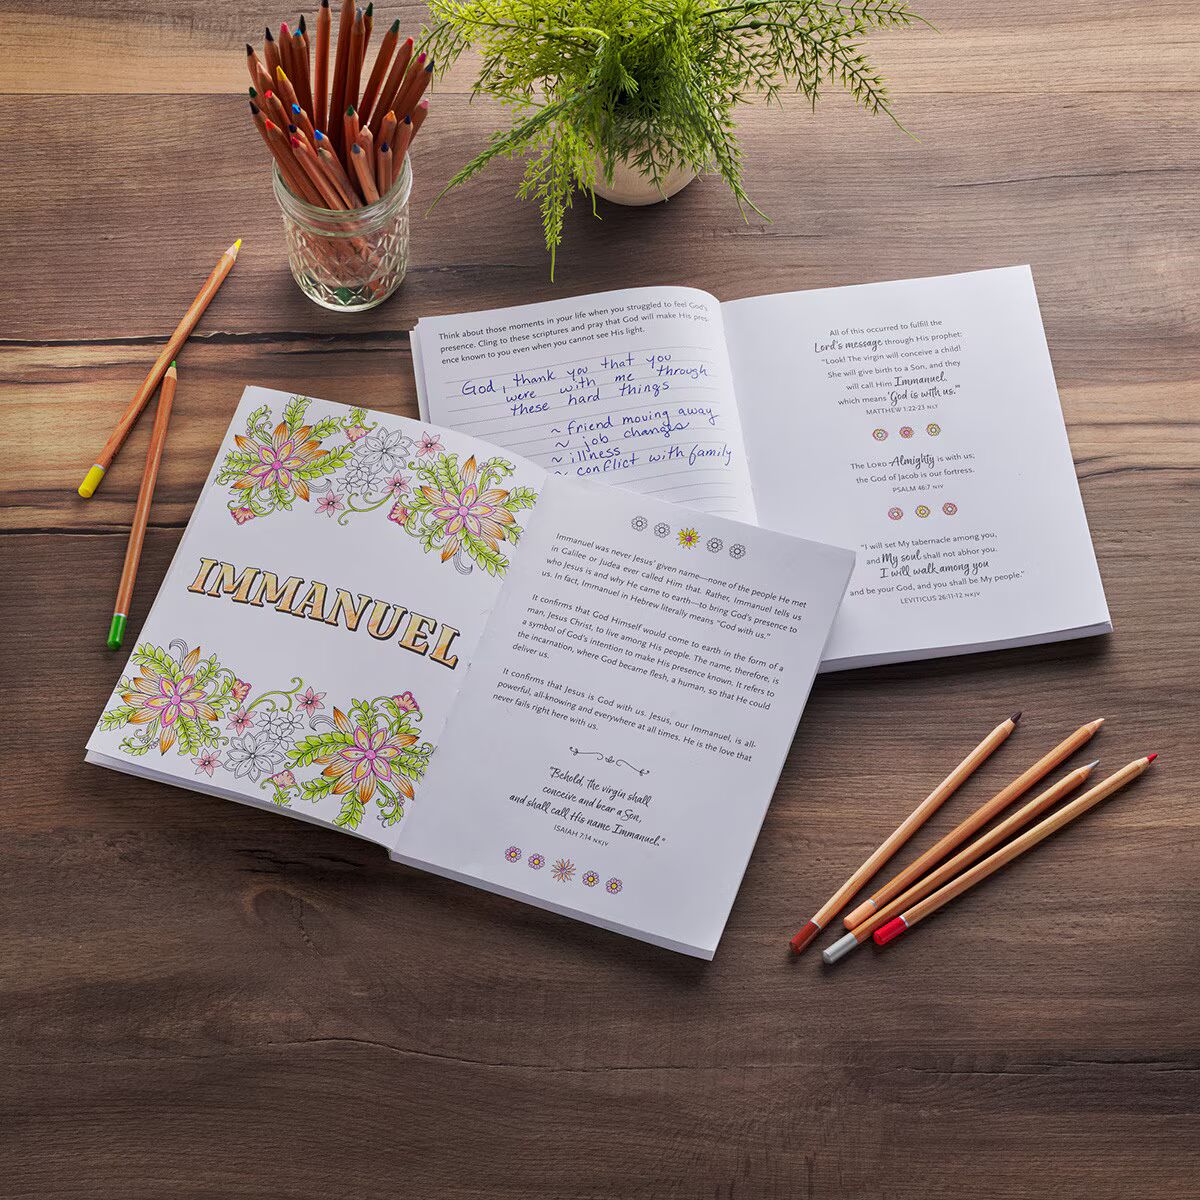 Think about those moments in your life when you struggled to feel God's
presence. Cling to these scriptures and pray that God will make His pres-
ence known to you even when you cannot see His light.
God, thank you that you
were with me through
these hard things
~ friend moving away
~ job changes
~ illness
~ conflict with family
All of this occurred to fulfill the
Lord's message through His prophet:
"Look! The virgin will conceive a child!
She will give birth to a Son, and they
will call Him Immanuel,
which means 'God is with us.'"
MATTHEW 1:22-23 NLT
The LORD Almighty is with us;
the God of Jacob is our fortress.
PSALM 46:7 NIV
"I will set My tabernacle among you,
and My soul shall not abhor you.
I will walk among you
and be your God, and you shall be My people."
LEVITICUS 26:11-12 NKJV
IMMANUEL
Immanuel was never Jesus' given name—none of the people He met
in Galilee or Judea ever called Him that. Rather, Immanuel tells us
who Jesus is and why He came to earth—to bring God's presence to
us. In fact, Immanuel in Hebrew literally means "God with us."
It confirms that God Himself would come to earth in the form of a
man, Jesus Christ, to live among His people. The name, therefore, is
a symbol of God's intention to make His presence known. It refers to
the incarnation, where God became flesh, a human, so that He could
deliver us.
It confirms that Jesus is God with us. Jesus, our Immanuel, is all-
powerful, all-knowing and everywhere at all times. He is the love that
never fails right here with us.
"Behold, the virgin shall
conceive and bear a Son,
and shall call His name Immanuel."
ISAIAH 7:14 NKJV